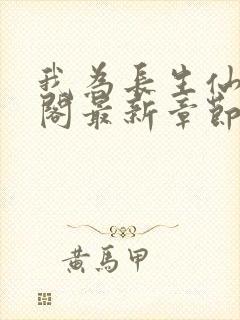 我為長生仙
閣最新章節
黃馬甲